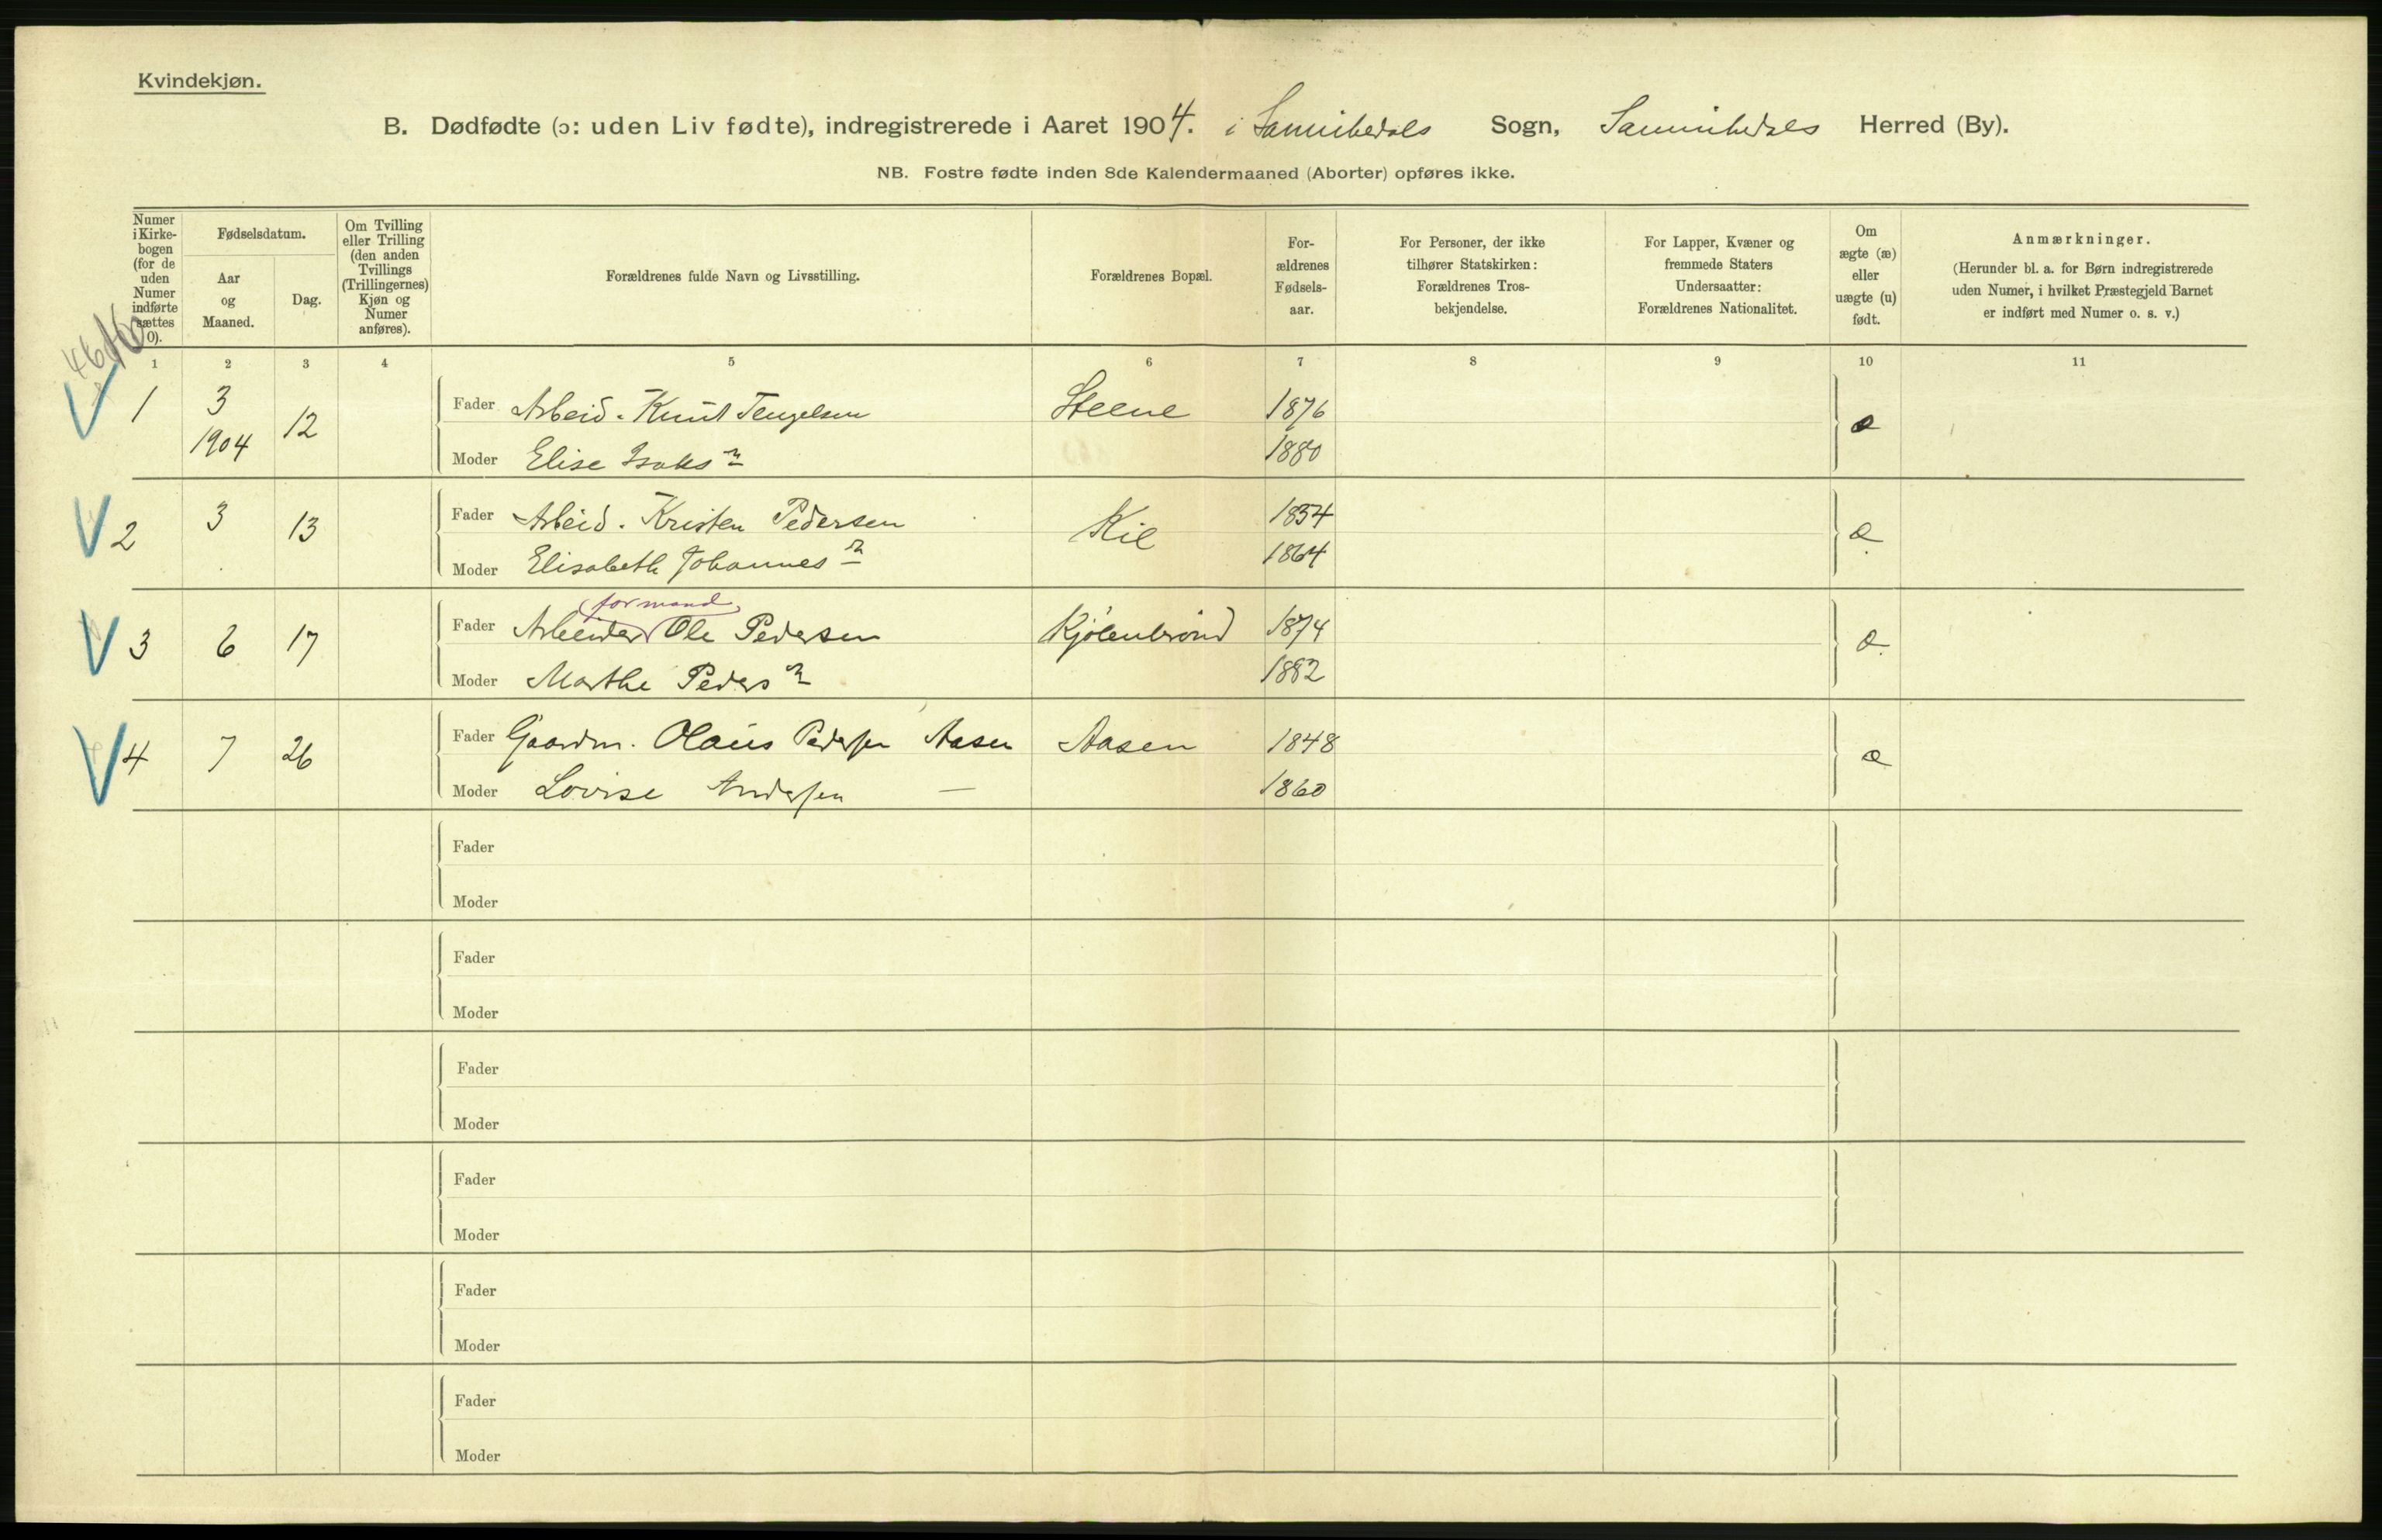 Kvindekjøn.
B. Dødfødte (ɔ: uden Liv fødte), indregistrerede i Aaret 1904. i Sannikedals Sogn, Sannikedals Herred (By).
NB. Fostre fødte inden 8de Kalendermaaned (Aborter) opføres ikke.
Numer i Kirke-bogen (for de uden Numer indførte sættes 0).
Fødselsdatum.
Aar og Maaned.
Dag.
Om Tvilling eller Trilling (den anden Tvillings (Trillingernes) Kjøn og Numer anføres).
Forældrenes fulde Navn og Livsstilling.
Forældrenes Bopæl.
For-ældrenes Fødsels-aar.
For Personer, der ikke tilhører Statskirken: Forældrenes Tros-bekjendelse.
For Lapper, Kvæner og fremmede Staters Undersaatter: Forældrenes Nationalitet.
Om ægte (æ) eller uægte (u) født.
Anmærkninger.
(Herunder bl. a. for Børn indregistrerede uden Numer, i hvilket Præstegjeld Barnet er indført med Numer o. s. v.)
1 2 3 4 5 6 7 8 9 10 11
1 3 1904 12 Fader Arbeid. Knut Tengelsen Steene 1876 æ
Moder Elise Isaks 1880
2 3 13 Fader Arbeid. Kristen Pedersen Kil 1854 æ
Moder Elisabeth Johannes 1864
formand
3 6 17 Fader Arbeider Ole Pedersen Kjølenbrønd 1874 æ
Moder Marthe Peders 1882
4 7 26 Fader Gaardm. Olaus Pedersen Aasen Aasen 1848 æ
Moder Lovise Andersen — 1860
Fader
Moder
Fader
Moder
Fader
Moder
Fader
Moder
Fader
Moder
Fader
Moder